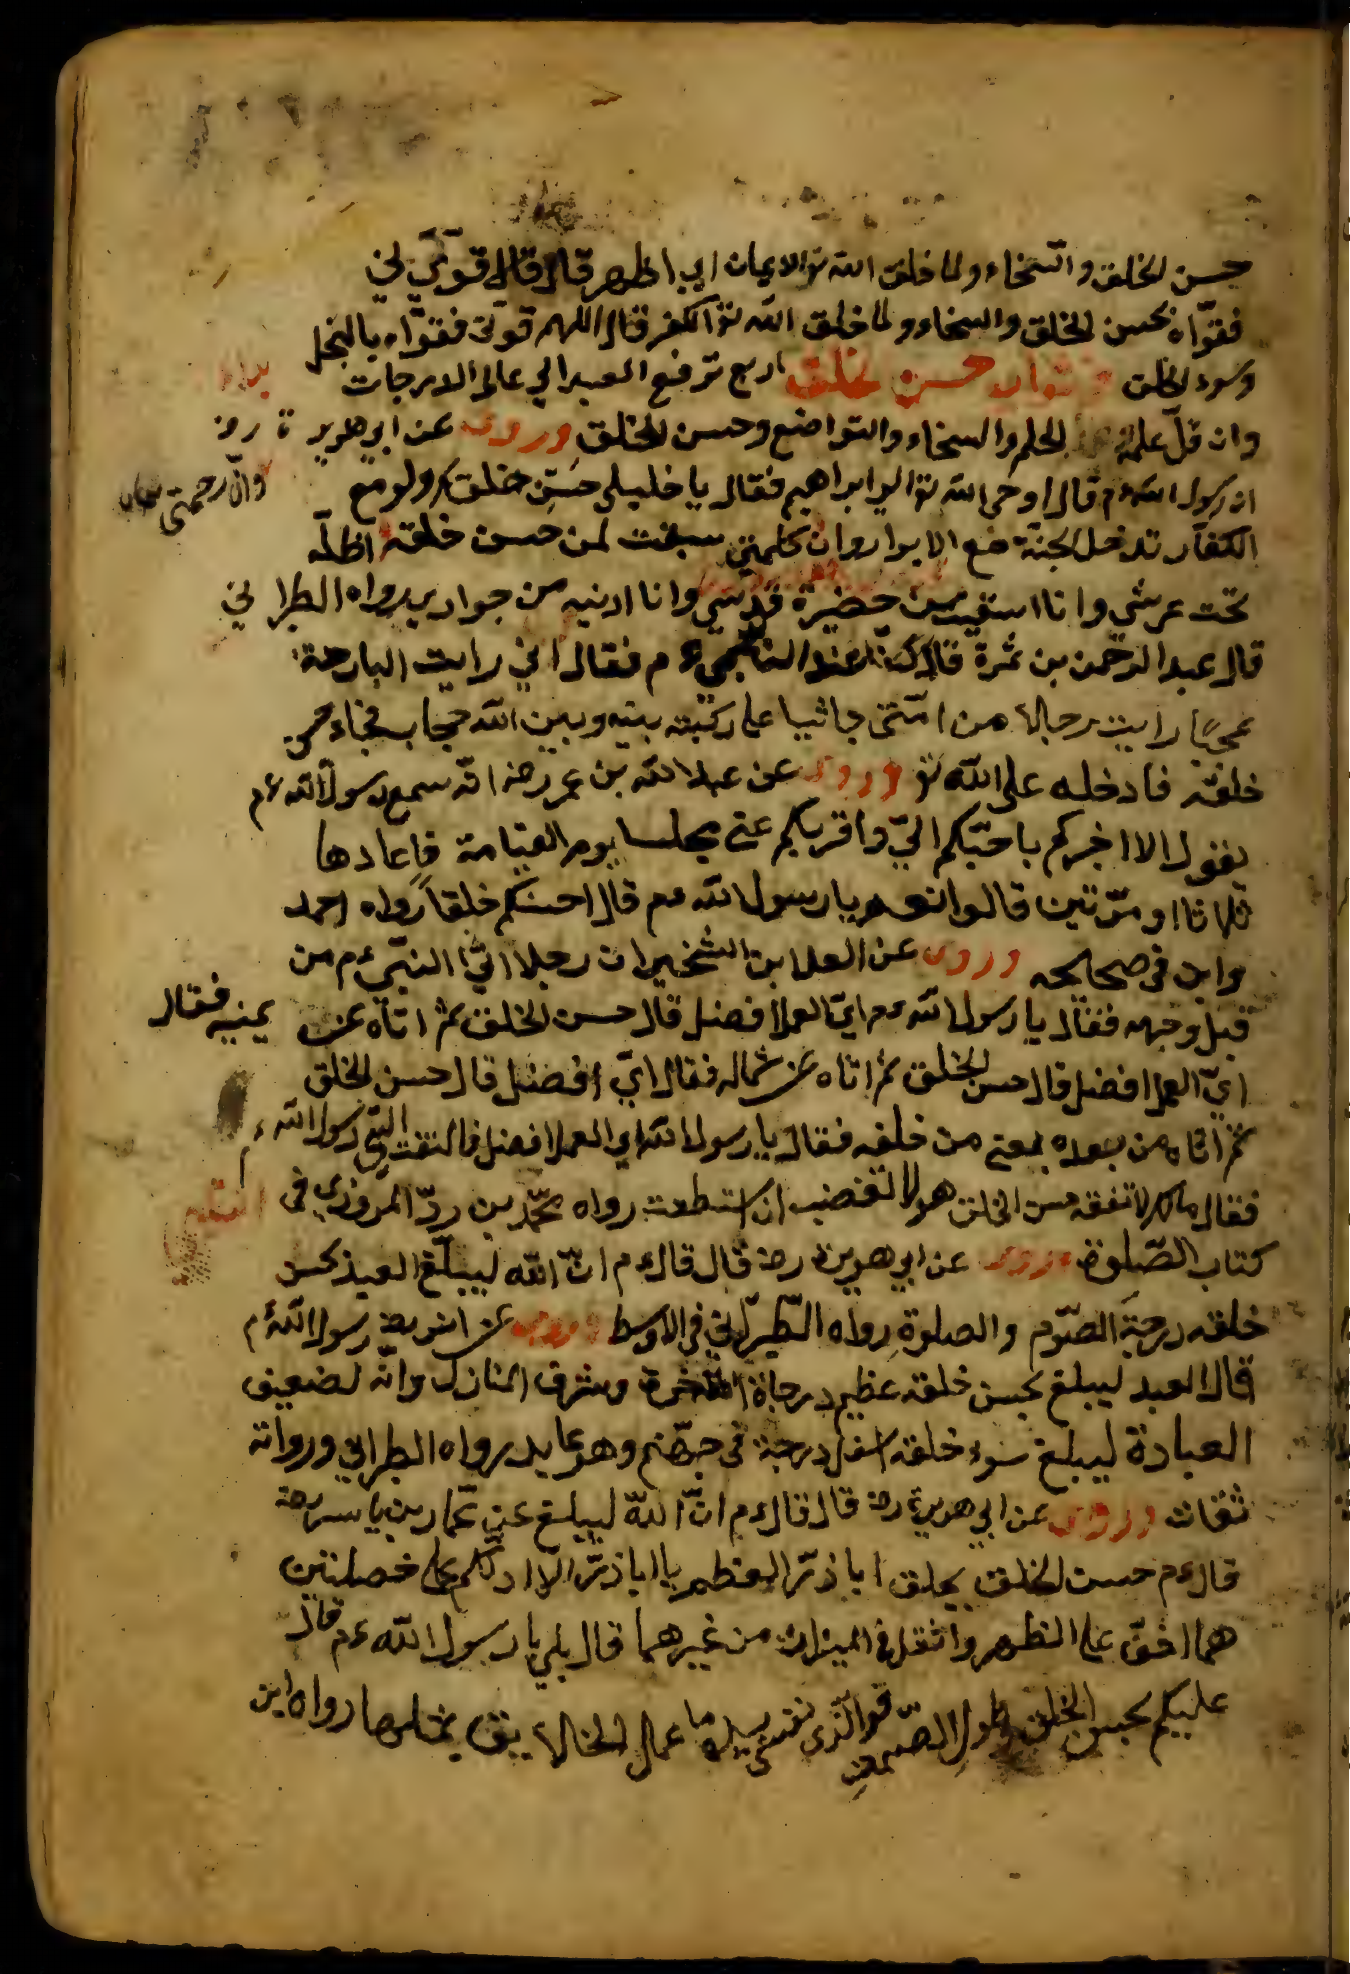 حسن الخلق والسخاء ولما خلق الله تع الايمان قال قال قوّني
فقوّاه بحسن الخلق والسخاء ولما خلق الله تع الكفر قال اللهم قوّني فقوّاه بالبخل
وسوء الخلق حسن الخلق اربع ترفع العبد الي عالى الدرجات
وان قلّ علمه الحلم والسخاء والتواضع وحسن الخلق وروى عن ابى هريرة رض
ان رسول الله ءم قال اوحى الله تع الى ابراهيم فقال يا خليلى حسّن خلقك ولو مع
وانّ رحمتى
الكفار تدخل الجنة مع الابرار وان كلمتي سبقت لمن حسن خلقه اظلّه
تحت عرشى وانا اسقيه من حضيرة قدسي وانا ادنيه من جوارى رواه الطبراني
قال عبد الرحمن بن ثمرة قال كنّا عند النبي ءم فقال اني رايت البارحة
عجبًا رايت رجالا من امّتى جاثيا على ركبته بينه وبين الله حجاب فجاء حسن
خلقه فادخله على الله تع وروى عن عبد الله بن عمر رض انّه سمع رسول الله ءم
يقول الا اخبركم باحبّكم اليّ واقربكم عنى مجلسا يوم القيامة فاعادها
ثلاثا او مرّتين قالوا نعم يا رسول الله ءم قال احسنكم خلقا رواه احمد
وابن فى صحاحه وروى عن العلا ابن الشخير ان رجلا اتى النبّى ءم من
قبل وجهه فقال يا رسول الله ءم ايّ العمل افضل قال حسن الخلق ثم اتاه عن يمينه فقال
ايّ العمل افضل قال حسن الخلق ثم اتاه عن شماله فقال ايّ افضل قال حسن الخلق
ثم اتاه من بعده يعنى من خلفه فقال يا رسول الله اي العمل افضل فالتفت اليّه رسول الله ء
فقال مالك لا تفقه حسن الخلق هو لا تغضب ان استطعت رواه محمّد بن المروزي فى
كتاب الصّلوة وروى عن ابي هريرة رض قال قال ءم انّ الله ليبلّغ العبد بحسن
خلقه درجة الصّوم والصلوة رواه الطّبراني فى الاوسط وروى عن انس رض رسول الله ءم
قال العبد ليبلغ بحسن خلقه عظيم درجاة الاخرة وشرف المنازل وانّه لضعيف
العبادة ليبلغ سوء خلقه اسفل درجة فى جهنّم وهو عابد رواه الطبراني ورواته
ثقات وروى عن ابي هريرة رض قال قال ءم انّ الله ليبلغ عن عمّار بن ياسر رض
قال ءم حسن الخلق خلق ابا ذرّ يا ابا ذرّ الا ادلّكم على خصلتين
هما اخفّ على الظهر واثقل فى الميزان من غيرهما قال بلى يا رسول الله ءم قال
عليكم بحسن الخلق وطول الصّمت فو الّذى نفسى بيده ما عمل الخلايق بمثلهما رواه ابن